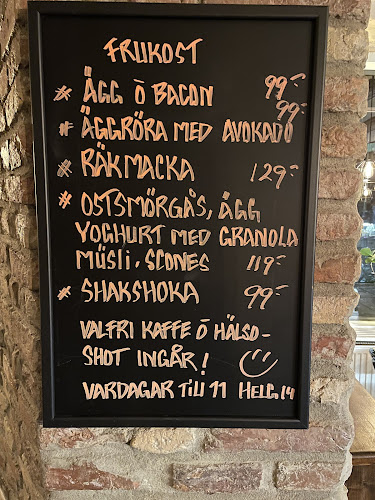 FRUKOST
* ÄGG Ö BACON 99:-
* ÄGGRÖRA MED AVOKADO 99:-
* RÄKMACKA 129:-
* OSTSMÖRGÅS, ÄGG
YOGHURT MED GRANOLA
MÜSLI. SCONES 119:-
* SHAKSHOKA 99:-
VALFRI KAFFE Ö HÄLSO-
SHOT INGÅR!
VARDAGAR TILL 11 HELG 14